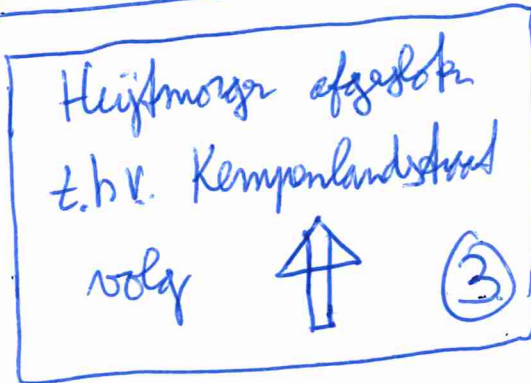 Heijtmorgen afgesloten
t.h.v. Kempenlandstraat
volg ⇧ 3